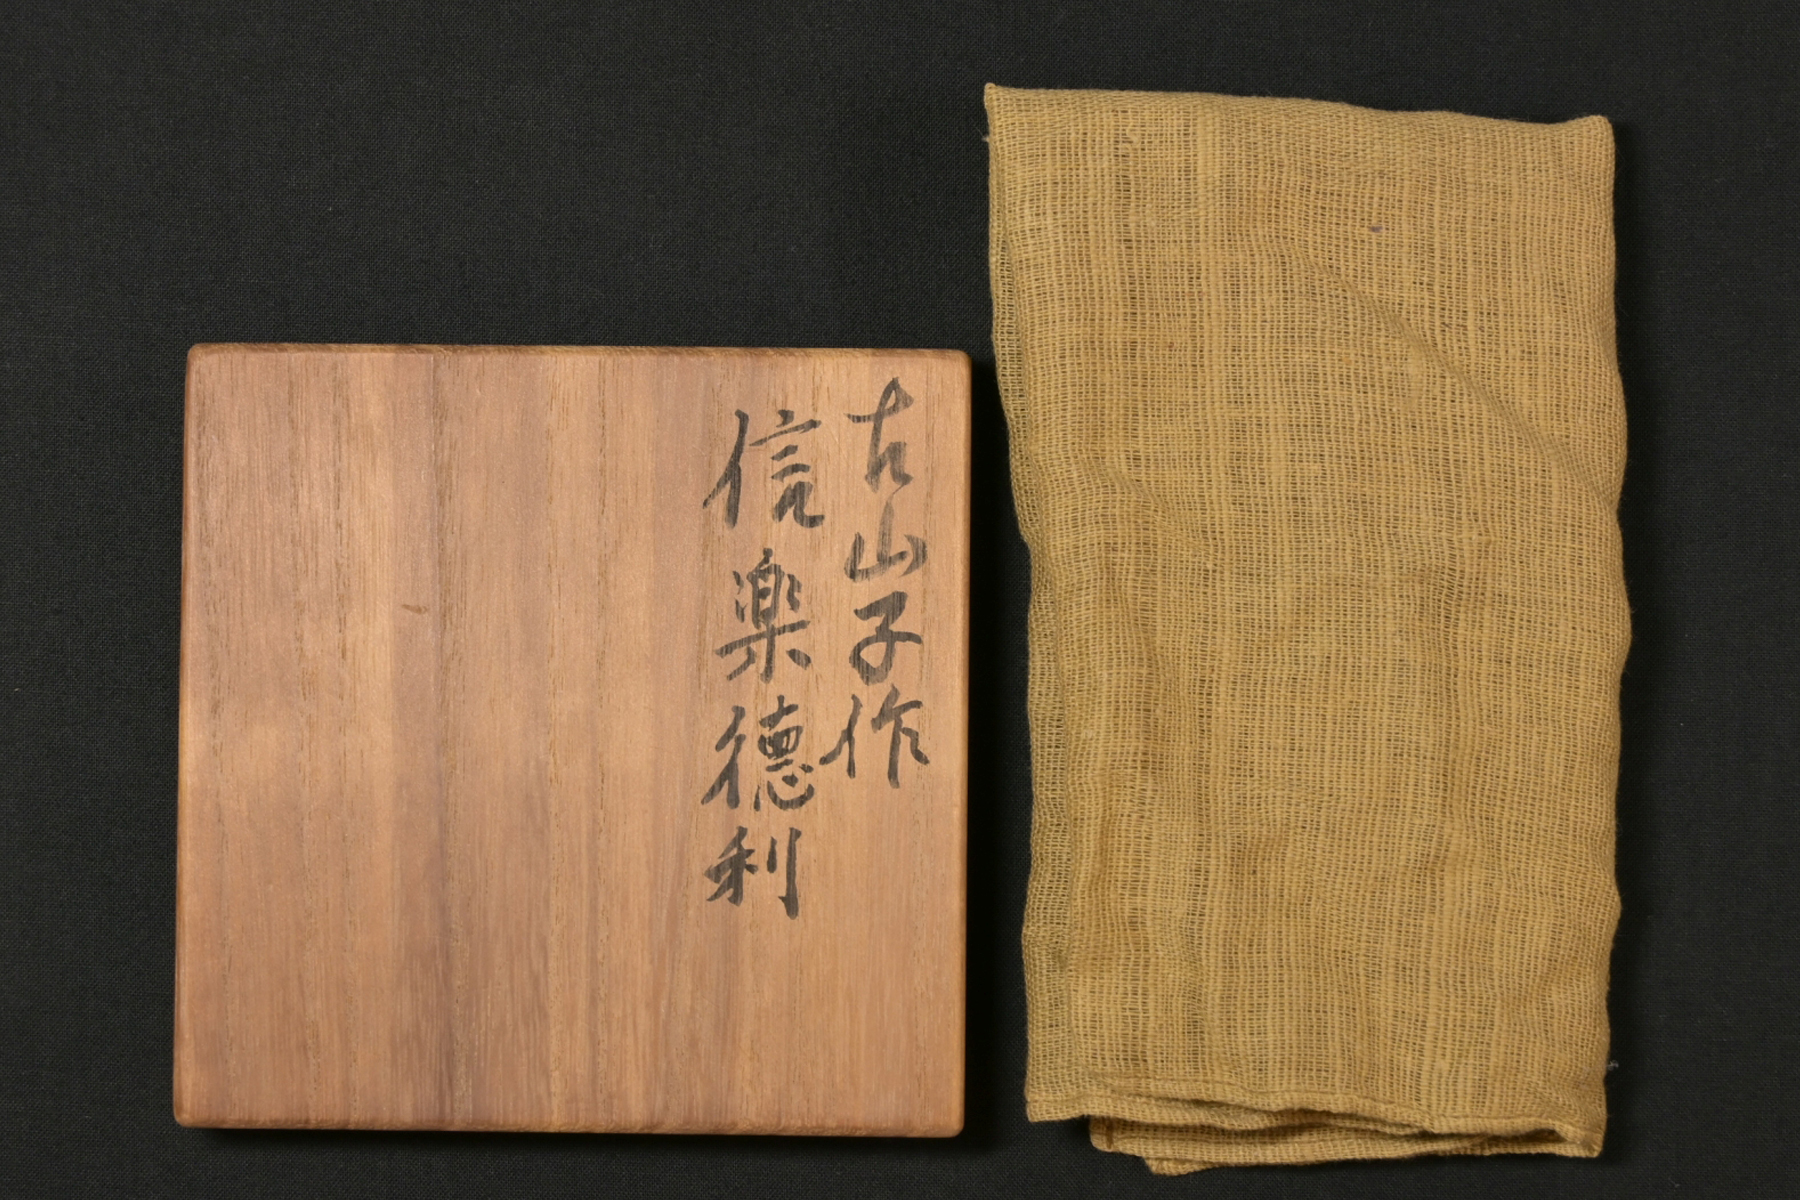 古山子作
信楽徳利